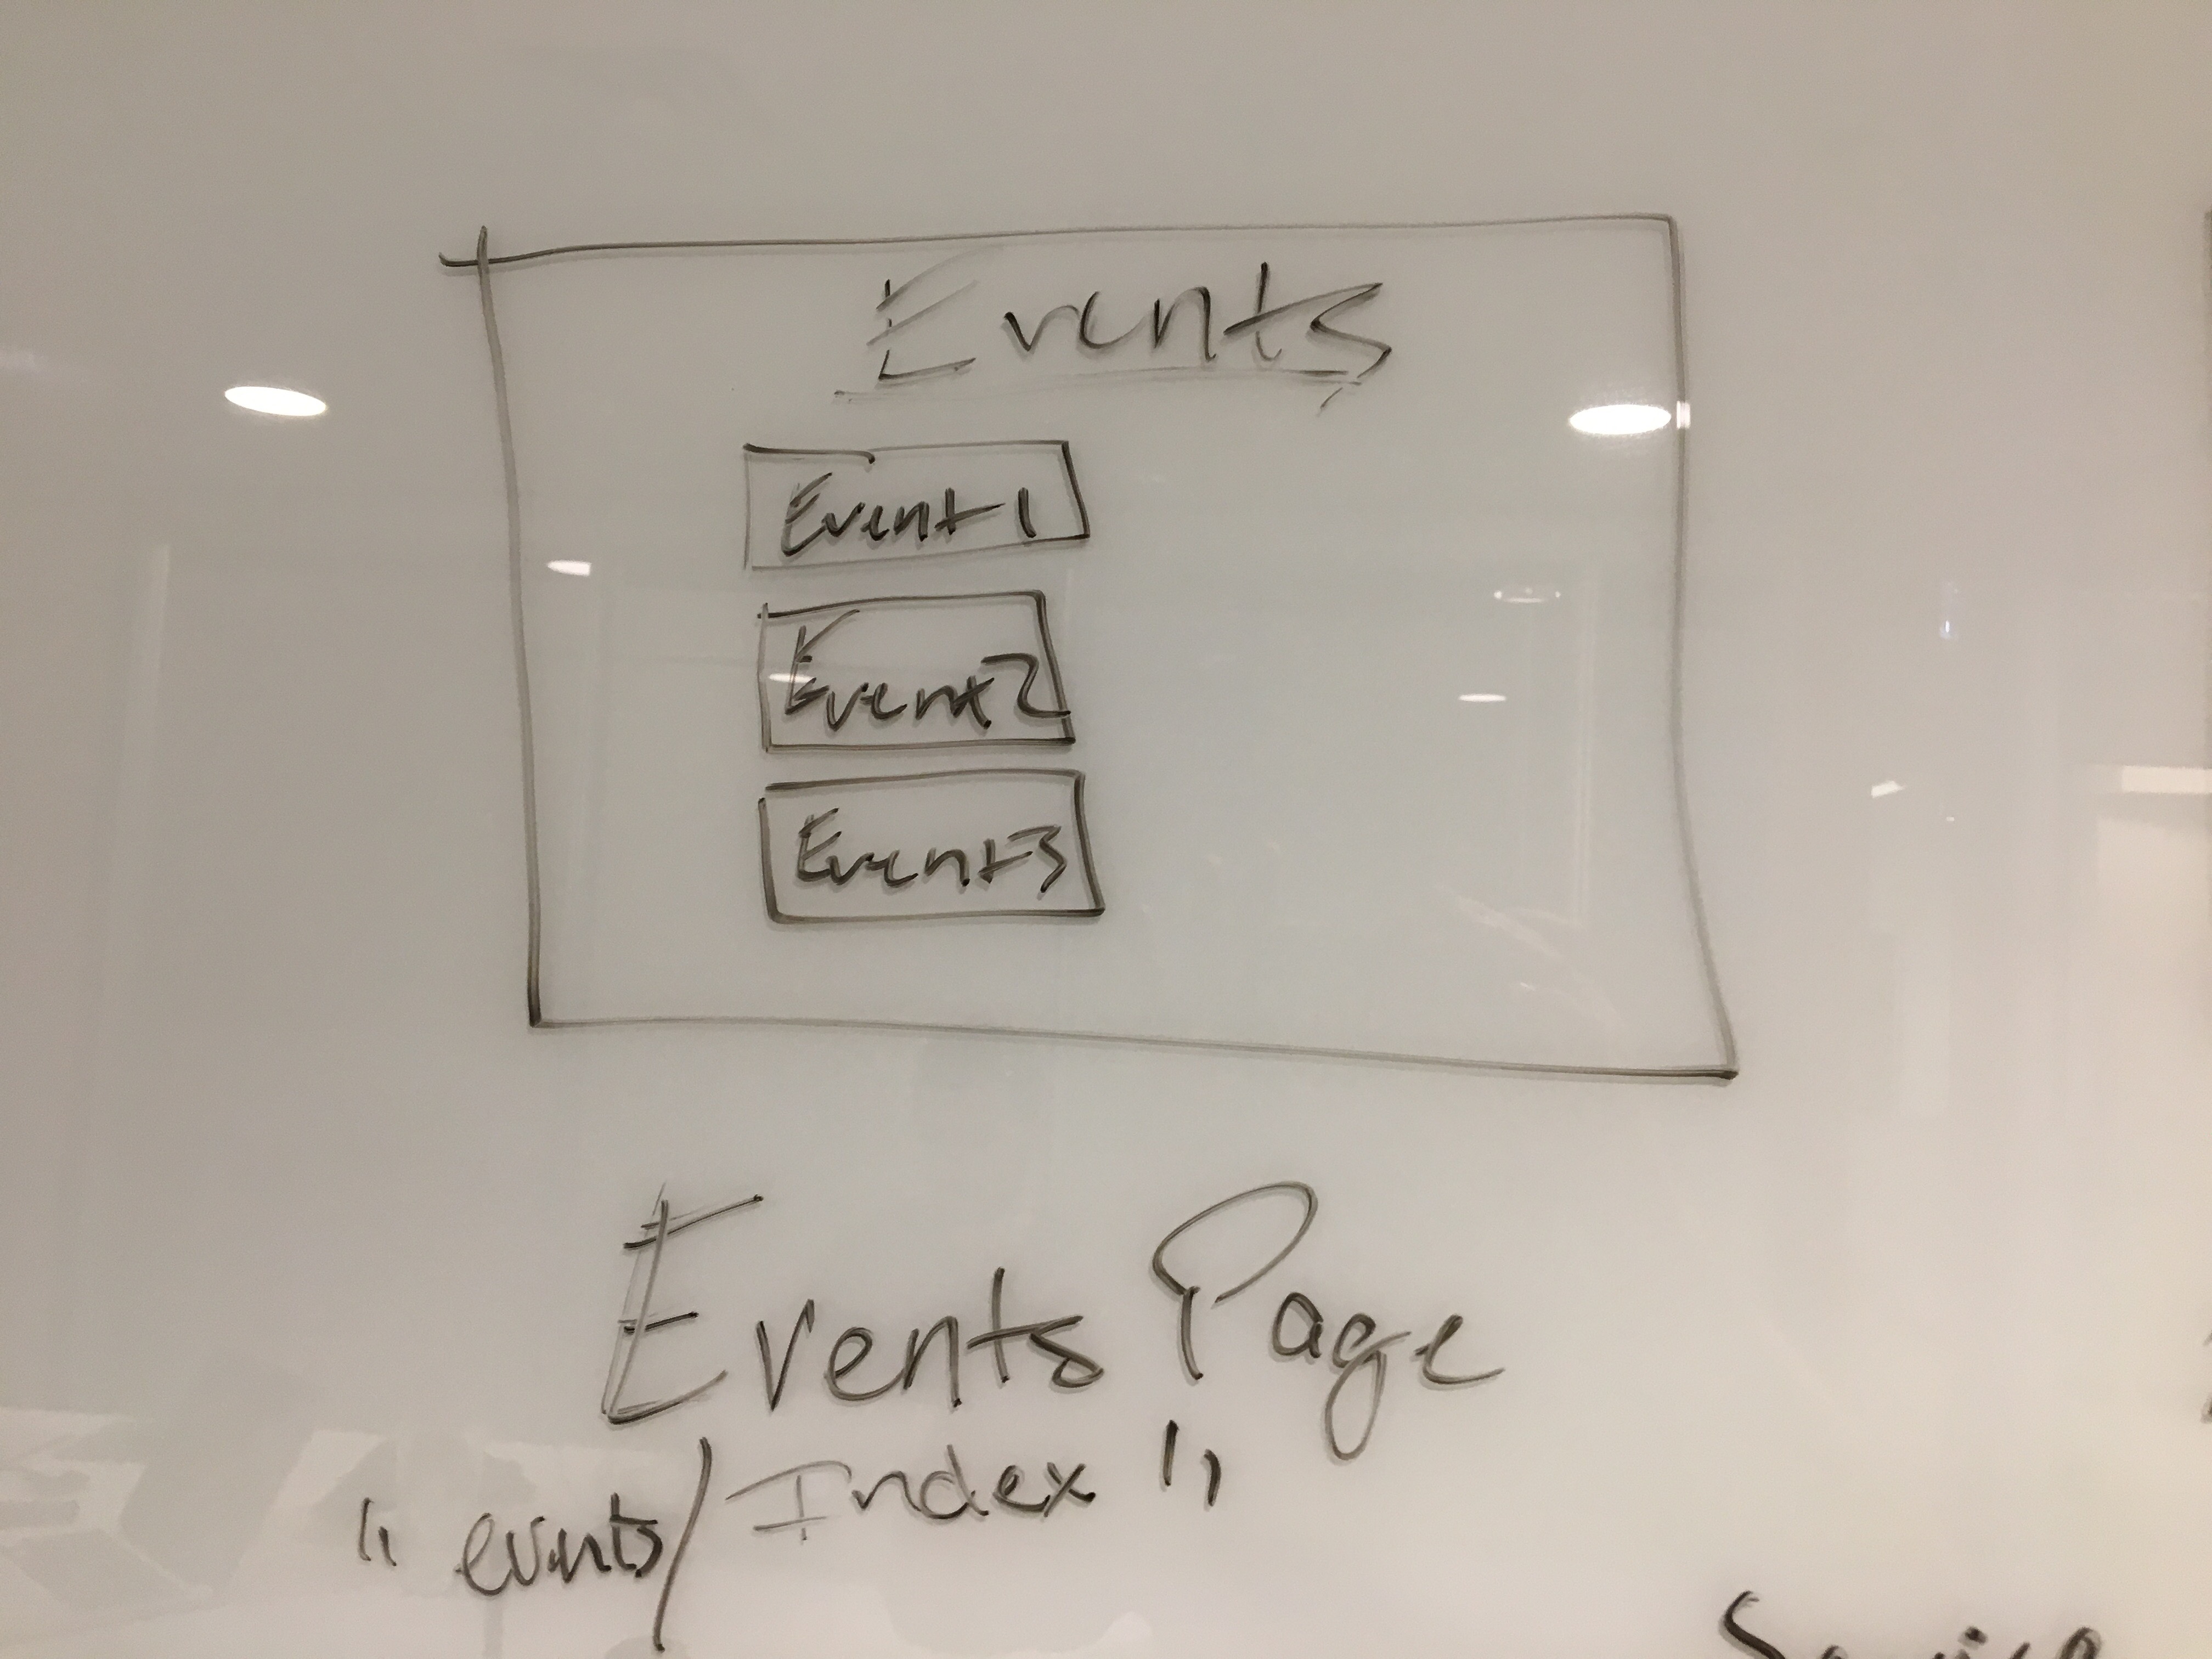 Events
Event 1
Event 2
Event 3
Events Page
"events/Index"